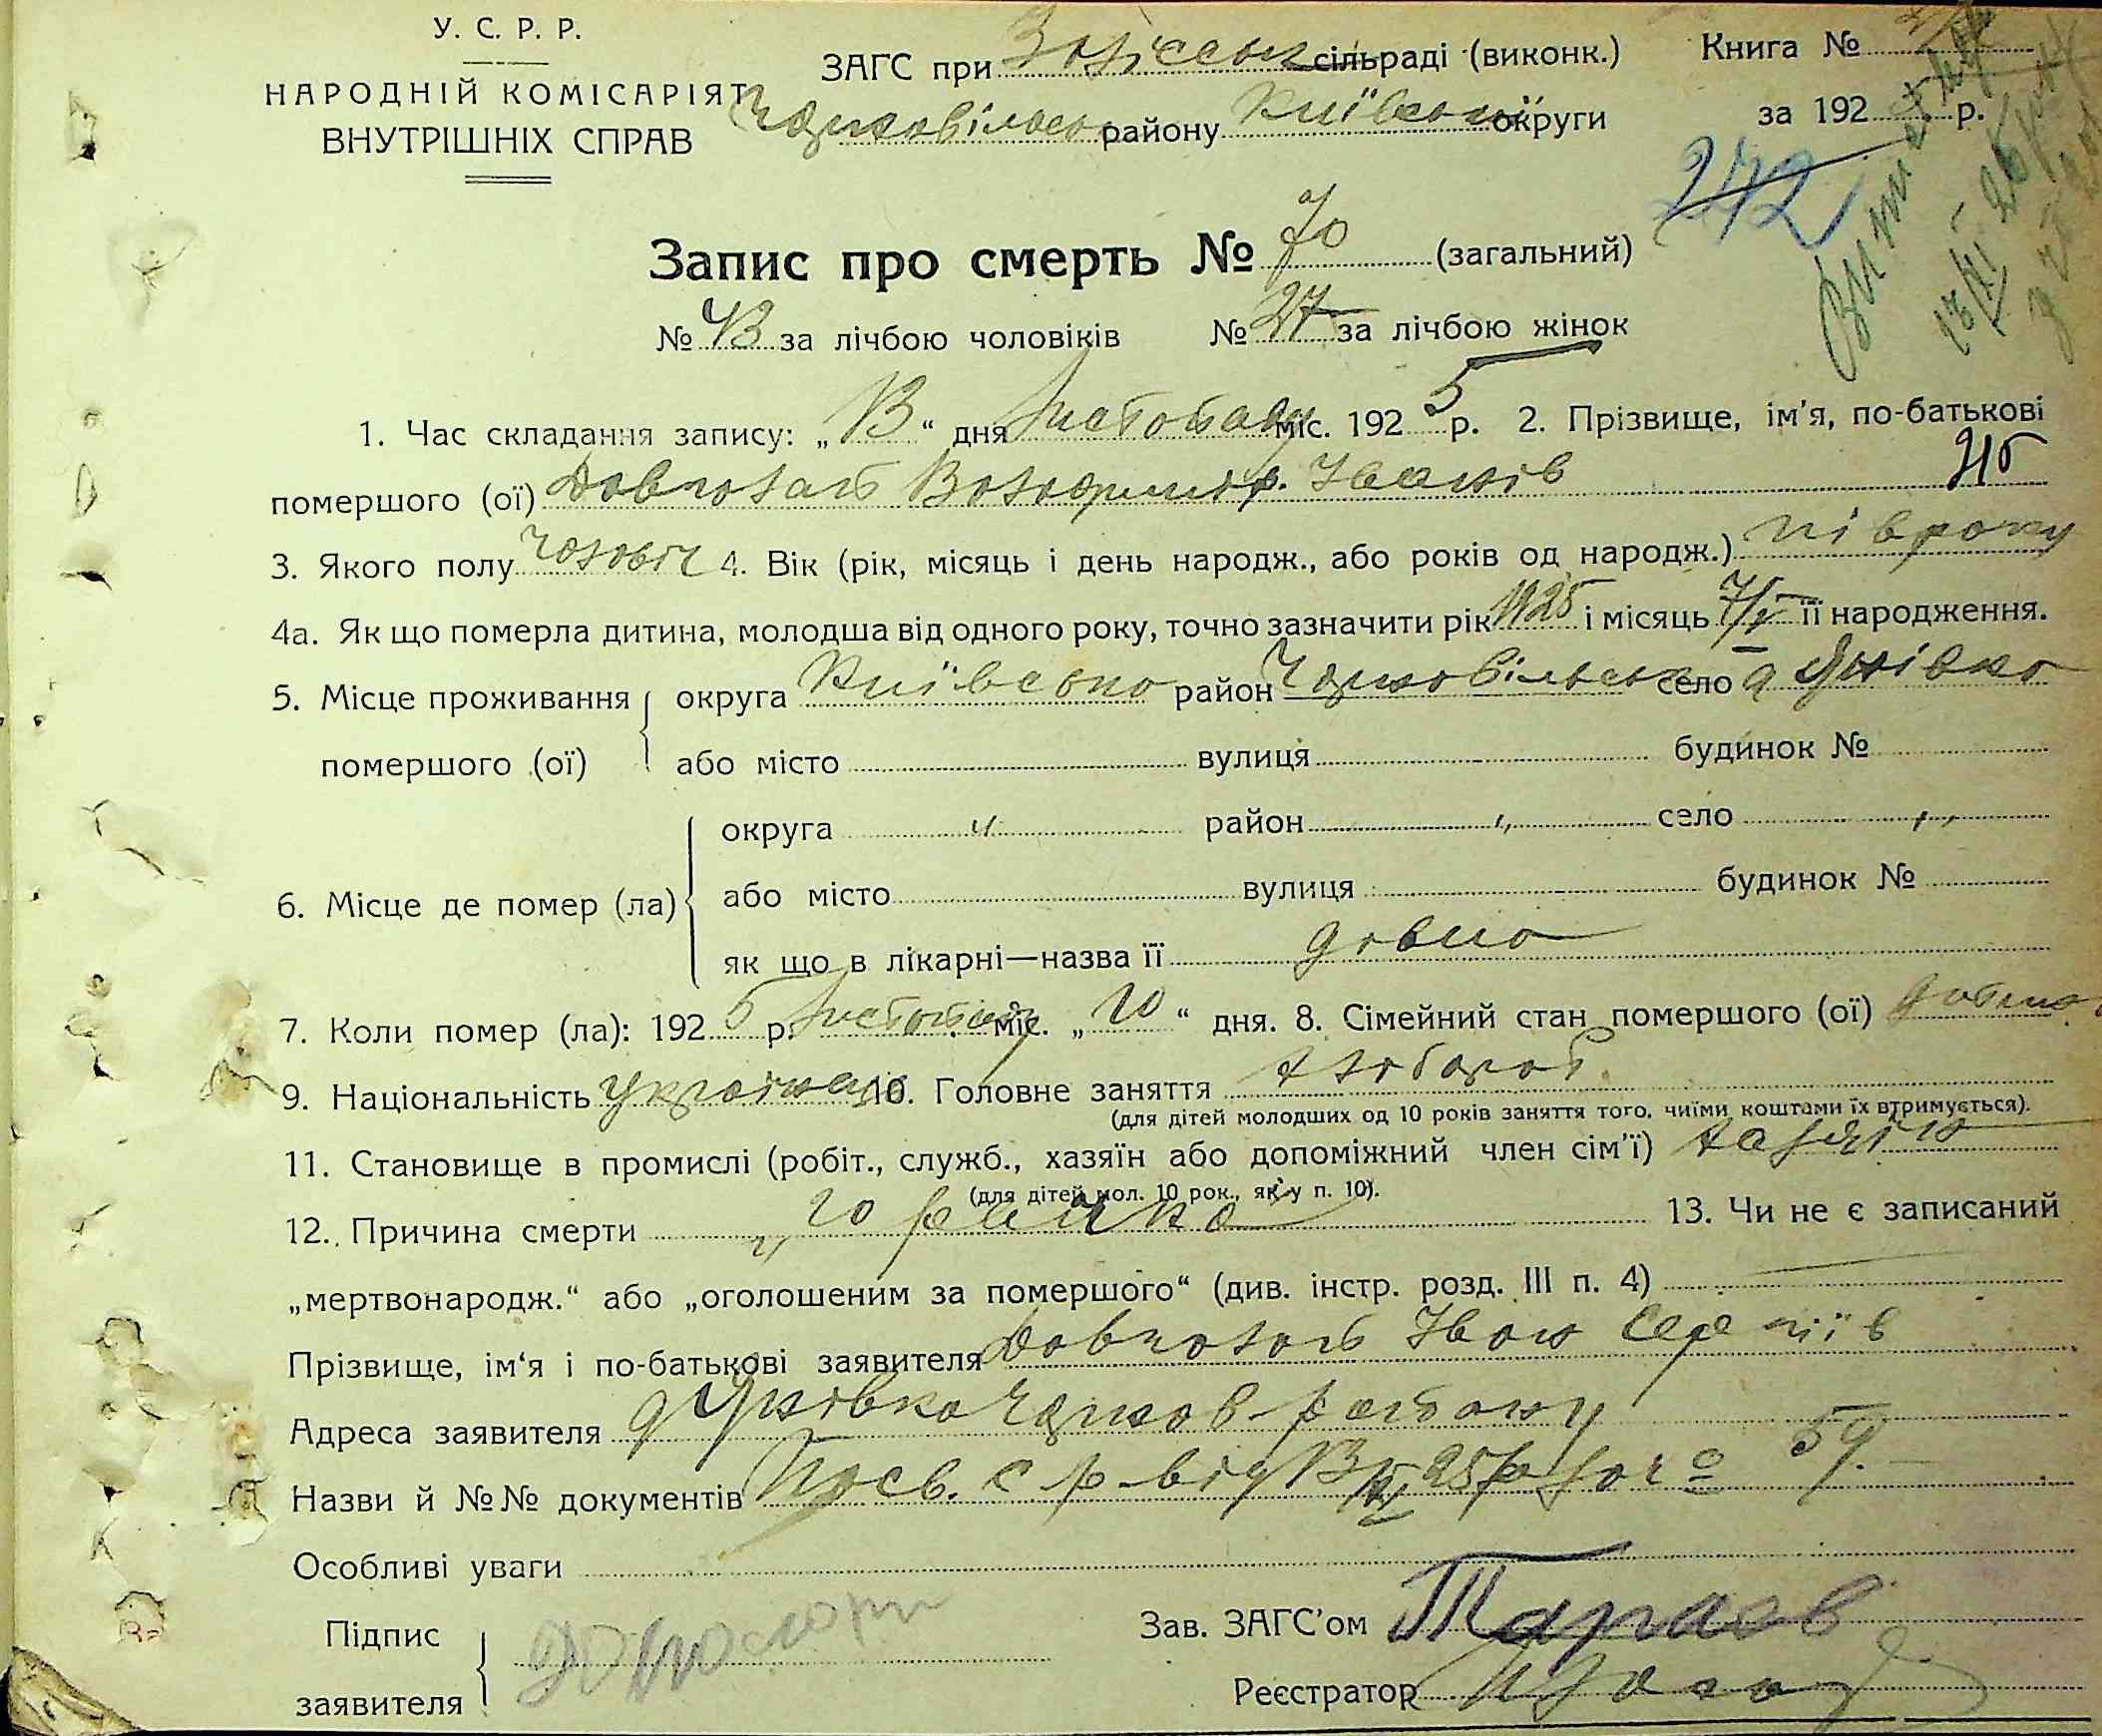 У. С. Р. Р.
НАРОДНІЙ КОМІСАРІЯТ
ВНУТРІШНІХ СПРАВ
ЗАГС при Заліськ сільраді (виконк.)
Чорнобільськ району Київської округи
Книга №
за 192 5 р.
242
Запис про смерть № 70 (загальний)
№ 43 за лічбою чоловіків № 27 за лічбою жінок
1. Час складання запису: „13“ дня Листопаду міс. 192 5 р. 2. Прізвище, ім’я, по-батькові
помершого (ої) Володимир Іванів
3. Якого полу чоловіч 4. Вік (рік, місяць і день народж., або років од народж.) пів року
4а. Як що померла дитина, молодша від одного року, точно зазначити рік 1925 і місяць 7/V її народження.
5. Місце проживання помершого (ої) округа Київсько район Чорнобільськ село д Янівка
або місто вулиця будинок №
6. Місце де помер (ла) округа „ район „ село „
або місто вулиця будинок №
як що в лікарні—назва її дома
7. Коли помер (ла): 192 5 р. Листопаду міс. „10“ дня. 8. Сімейний стан помершого (ої)
9. Національність українець 10. Головне заняття хлібороб
(для дітей молодших од 10 років заняття того, чиїми коштами їх втримується).
11. Становище в промислі (робіт., служб., хазяїн або допоміжний член сім’ї) хазяїн
(для дітей мол. 10 рок., як у п. 10).
12. Причина смерти горячка 13. Чи не є записаний
„мертвонародж.“ або „оголошеним за помершого“ (див. інстр. розд. III п. 4)
Прізвище, ім‘я і по-батькові заявителя Іван Сергіїв
Адреса заявителя д Янівка Чорноб. району
Назви й №№ документів Посв. с/р від 13/XI 25р за № 59.
Особливі уваги
Підпис заявителя
Зав. ЗАГС’ом
Реєстратор